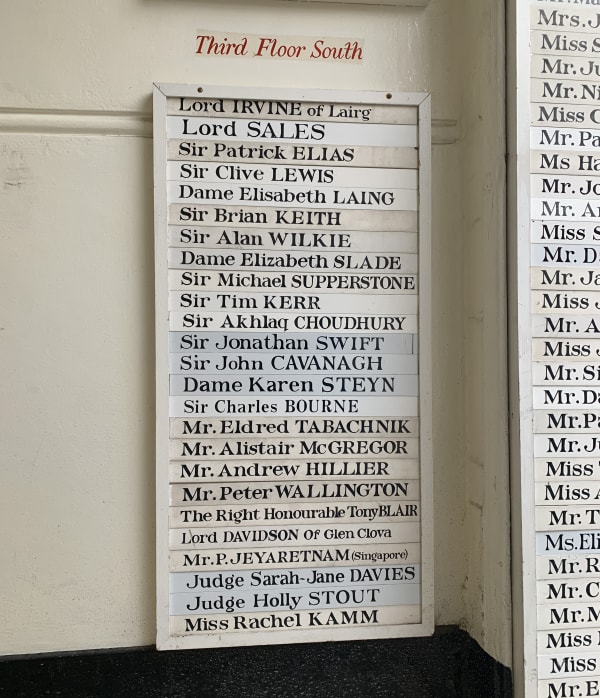 Third Floor South
Lord IRVINE of Lairg
Lord SALES
Sir Patrick ELIAS
Sir Clive LEWIS
Dame Elisabeth LAING
Sir Brian KEITH
Sir Alan WILKIE
Dame Elizabeth SLADE
Sir Michael SUPPERSTONE
Sir Tim KERR
Sir Akhlaq CHOUDHURY
Sir Jonathan SWIFT
Sir John CAVANAGH
Dame Karen STEYN
Sir Charles BOURNE
Mr. Eldred TABACHNIK
Mr. Alistair McGREGOR
Mr. Andrew HILLIER
Mr. Peter WALLINGTON
The Right Honourable Tony BLAIR
Lord DAVIDSON Of Glen Clova
Mr. P. JEYARETNAM (Singapore)
Judge Sarah-Jane DAVIES
Judge Holly STOUT
Miss Rachel KAMM
Mrs. J
Miss S
Mr. Ju
Mr. Ni
Miss C
Mr. Pa
Ms Ha
Mr. Jo
Mr. A
Miss S
Mr. D
Mr. Ja
Miss J
Mr. A
Miss J
Mr. Si
Mr. Da
Mr. Pa
Mr. Ju
Miss
Miss A
Mr. T
Ms. Eli
Mr. R
Mr. C
Mr. M
Miss
Miss
Mr. E